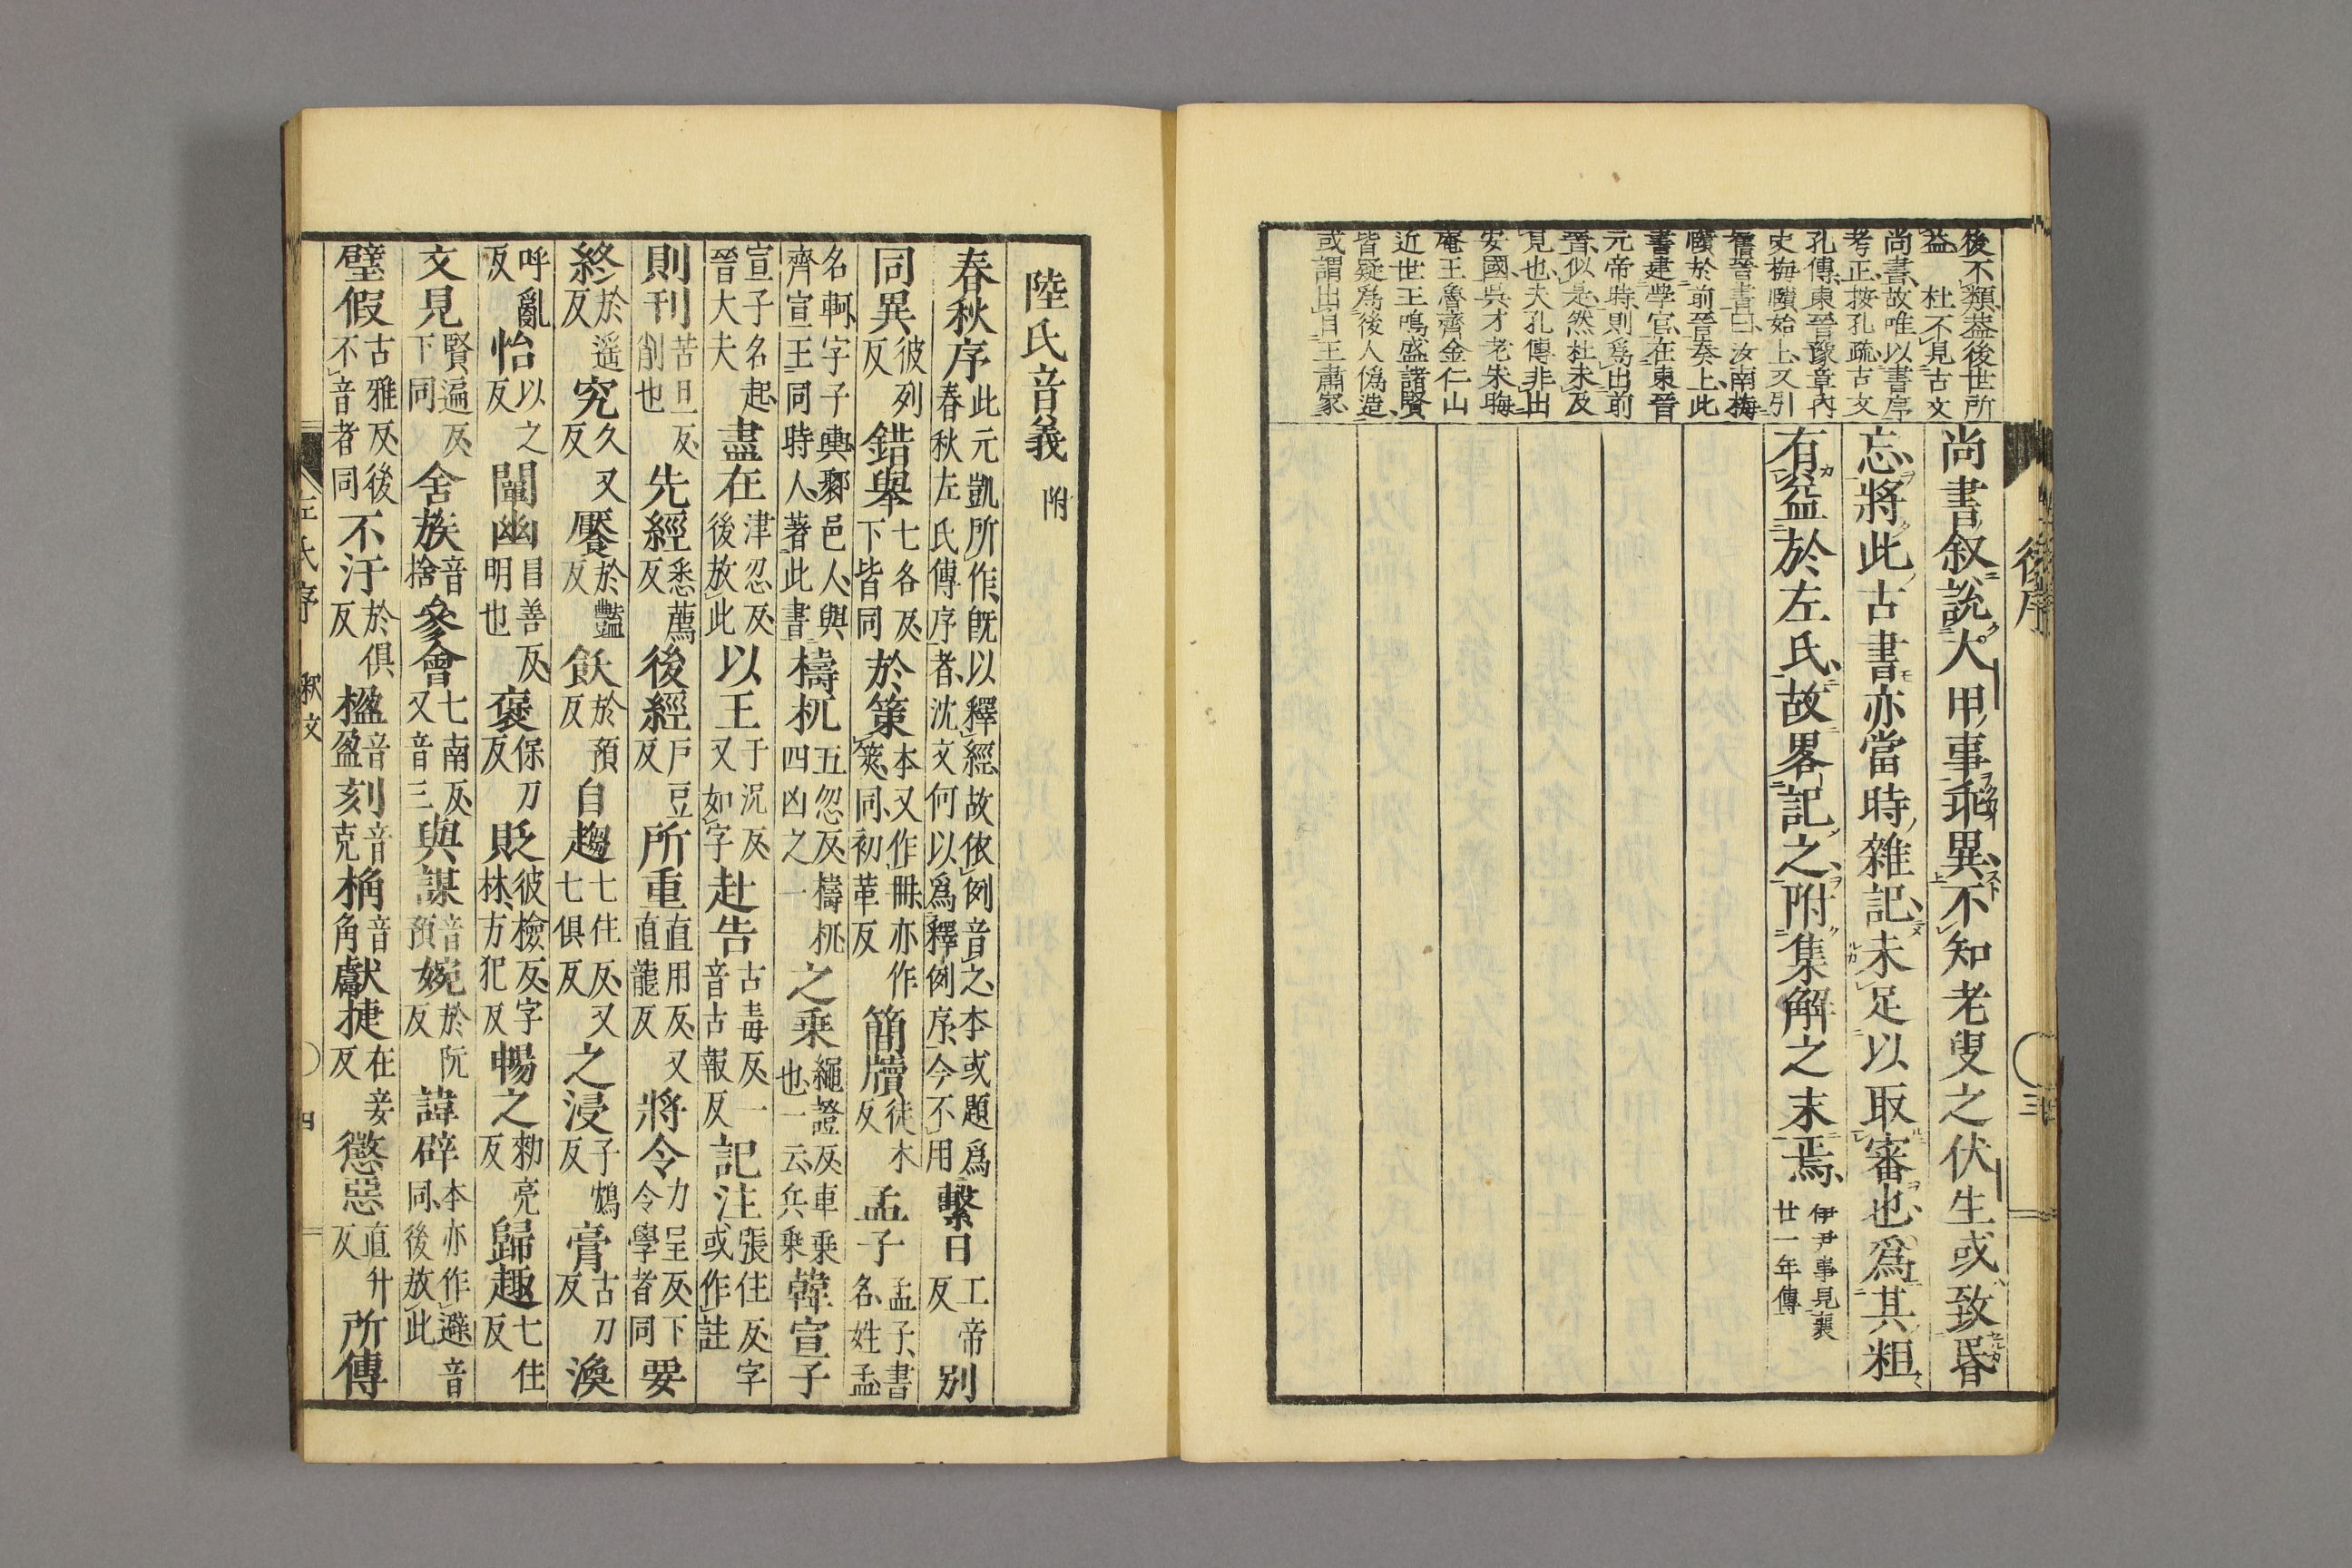 後不類蓋後世所
益 杜不見古文
尚書故唯以書序
考正按孔疏古文
孔傳東晉豫章內
史梅賾始上又引
舊晉書曰汝南梅
賾於前晉奏上此
書建學官在東晉
元帝時則爲出前
晉似是然杜未及
見也夫孔傳非出
安國吳才老朱晦
庵王魯齊金仁山
近世王鳴盛諸賢
皆疑爲後人偽造
或謂出自王肅家
尚書叙說大甲事乖異不知老叟之伏生或致昏
忘將此古書亦當時雜記未足以取審也爲其粗
有益於左氏故畧記之附集解之末焉 伊尹事見襄廿一年傳
後序
三
陸氏音義 附
春秋序 此元凱所作既以釋經故依例音之本或題爲春秋左氏傳序者沈文何以爲釋例序今不用 繫日 工帝反 別
同異 彼列反 錯舉 七各反下皆同 於策 本又作冊亦作筴同初革反 簡牘 徒木反 孟子 孟子書名姓孟
名軻字子輿鄹邑人與齊宣王同時人著此書 檮杌 五忽反檮杌四凶之一 之乘 繩證反車乘也一云兵乘 韓宣子
宣子名起晉大夫 盡在 津忍反後放此 以王 于況反又如字 赴告 古毒反一音古報反 記注 張住反字或作註
則刊 苦旦反削也 先經 悉薦反 後經 戶豆反 所重 直用反又直龍反 將令 力呈反下令學者同 要
終 於遥反 究 久又反 饜 於豔反 飫 於預反 自趨 七住反又七俱反 之浸 子鴆反 膏 古刀反 渙
呼亂反 怡 以之反 闡幽 昌善反明也 褒 保刀反 貶 彼檢反字林方犯反 暢之 勑亮反 歸趣 七住反
文見 賢遍反下同 舍族 音捨 參會 七南反又音三 與謀 音預 婉 於阮反 諱辟 本亦作避音同後放此
璧假 古雅反後不音者同 不汙 於俱反 楹 音盈 刻 音克 桷 音角 獻捷 在妾反 懲惡 直升反 所傳
左氏序 釈文 四